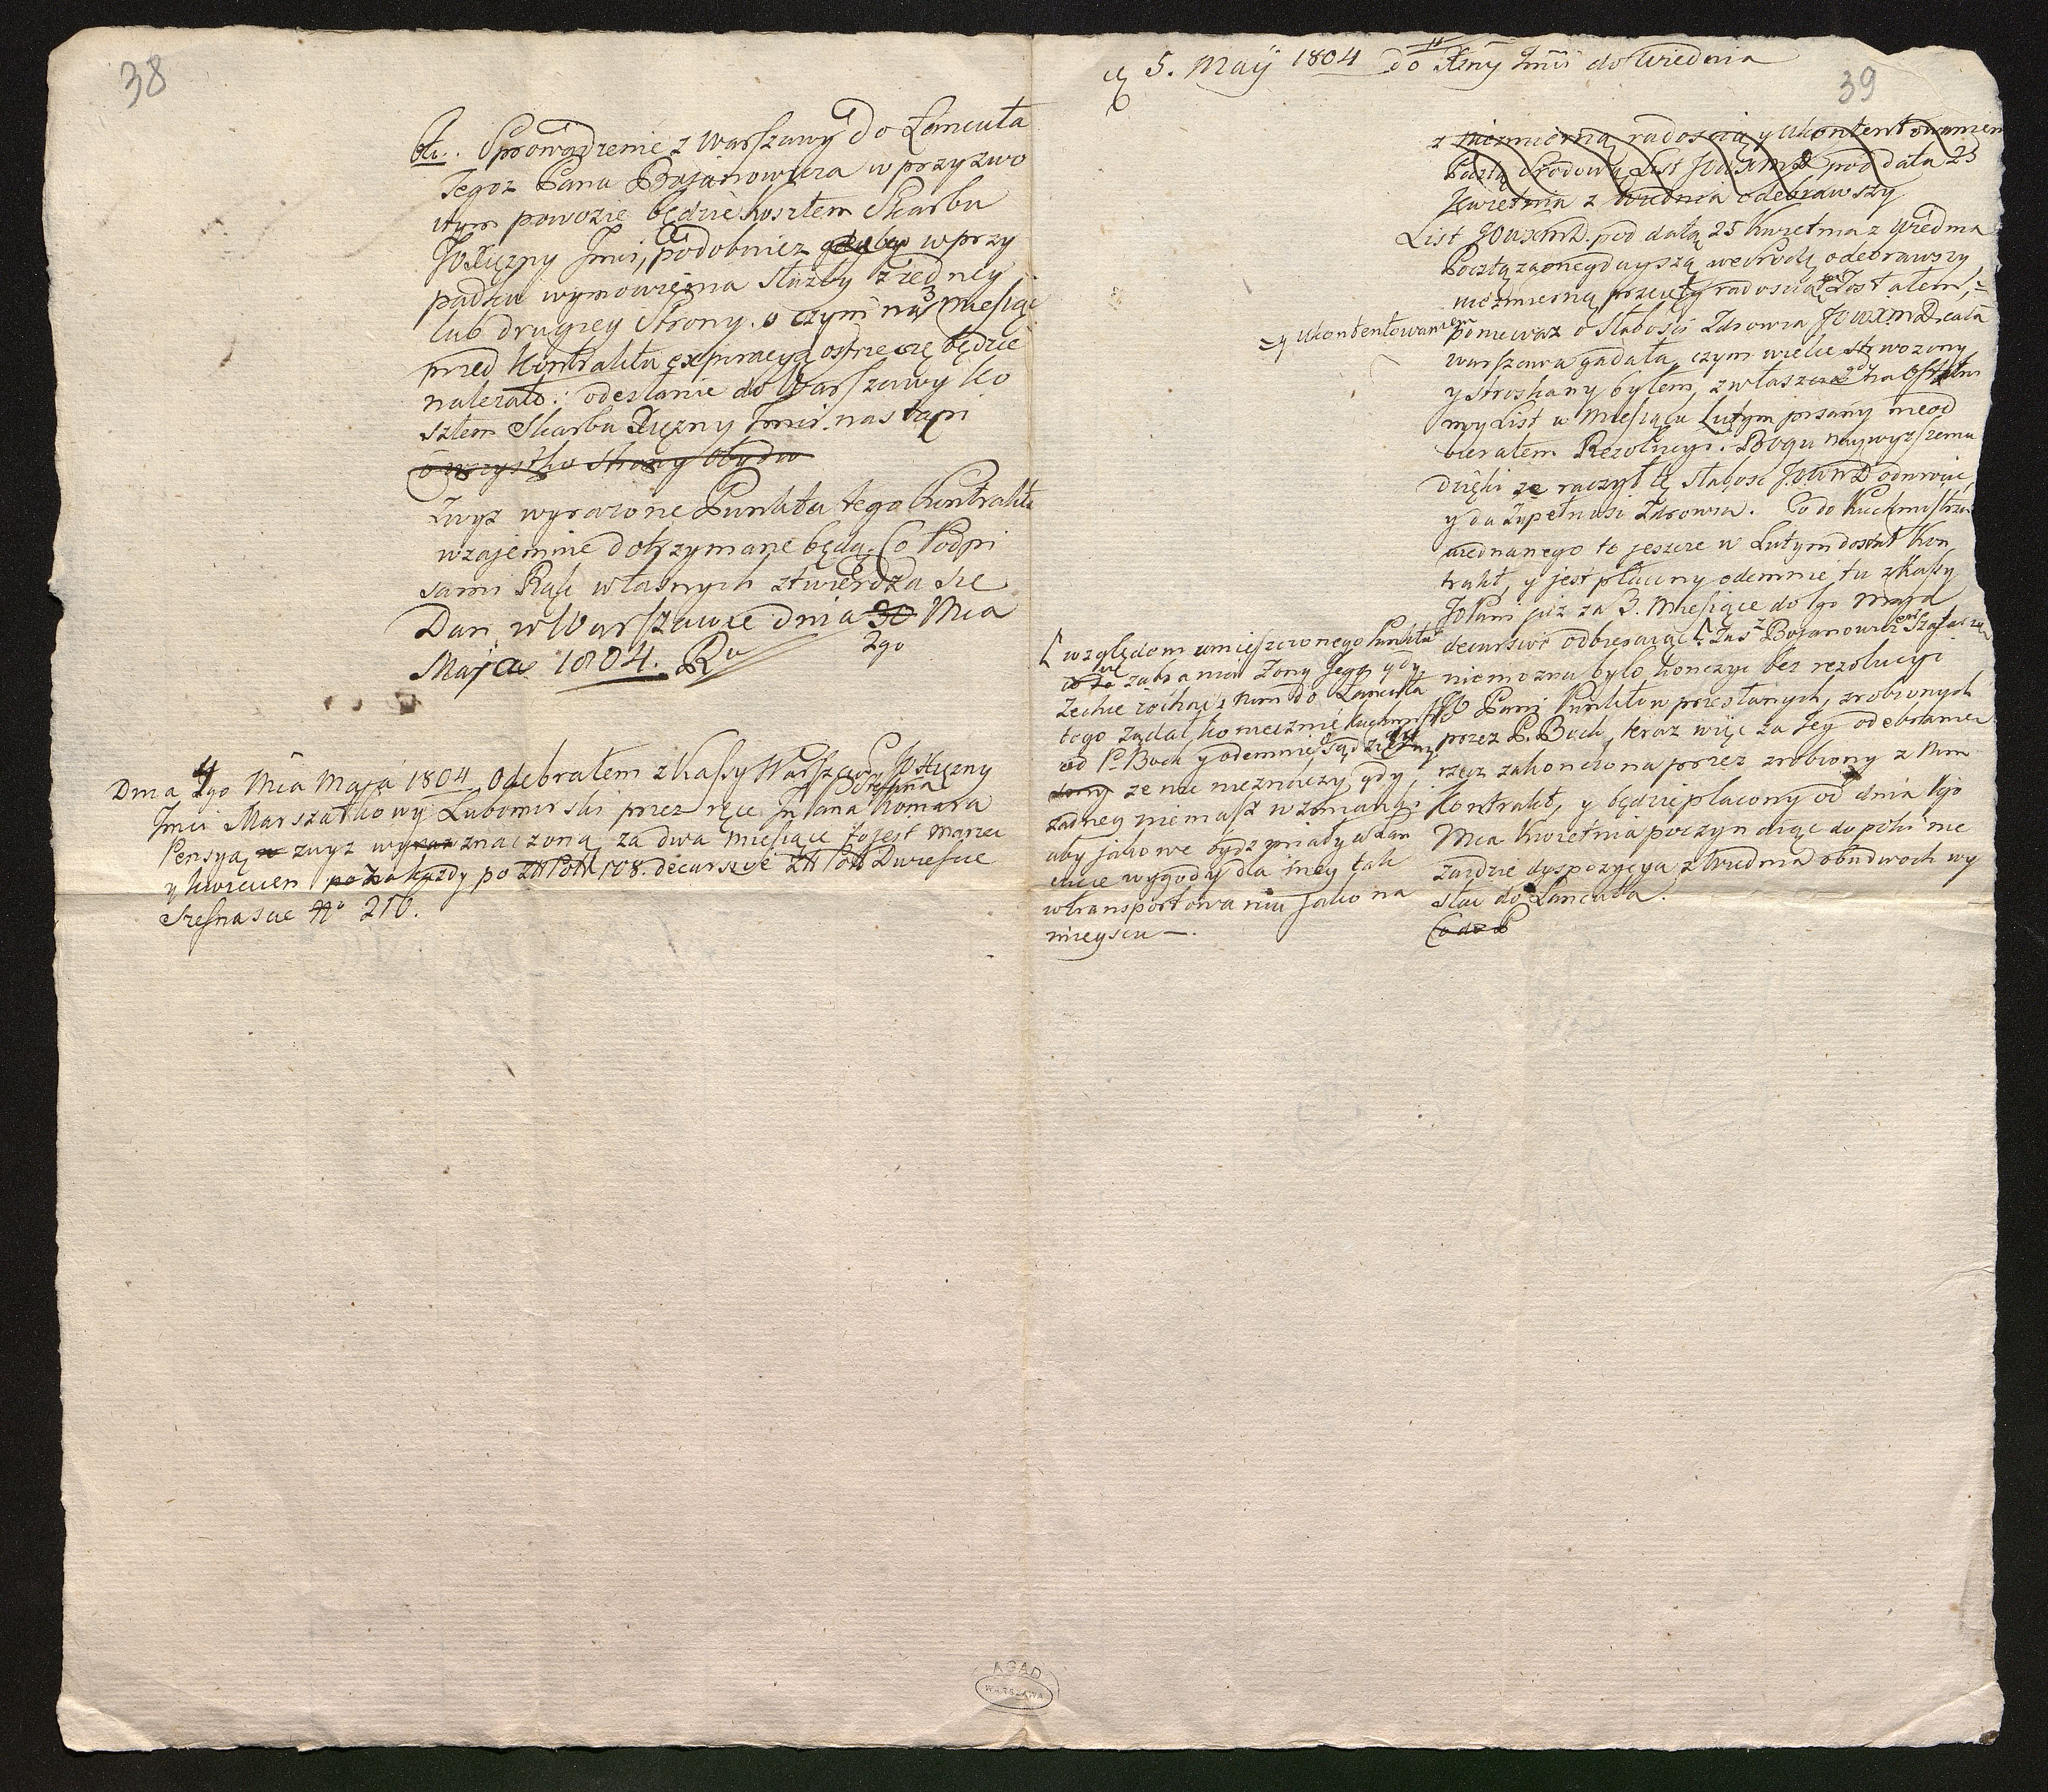 38
6tt. Sprowadzenie z Warszawy do Łancuta
Tegoz Pana Bojanowicza w przyzwo
itym powozie będzie kosztem Skarbu
JOXięzny Jmci, podobniez gdyby w przy
padku wymowienia Służby z iedney
lub drugiey Strony. o czym na 3 miesiące
przed Kontraktu expiracyą ostrzec się będzie
nalezało: odesłanie do Warszawy ko
sztem Skarbu Xięzny Jmci nastąpi
o wszystko strony Obydwie
Zwyz wyrazone Punkta tego Kontraktu
wzajemnie dotrzymane będą. Co Podpi
sami Rąk własnych stwierdza się
Dan w Warszawie dnia 30 Mca
2go
Maja 1804. Ru
Dnia 4 2go Mca Maja 1804 Odebrałem z Kassy Warszaw: JOXięzny
Jmci Marszałkowy Lubomirski przez ręce Jn Pana Komara
Pensyą zwyz wyraznaczoną za dwa miesiące to jest Marzec
y kwiecien po za kazdy po Zł Pol 108. decursive Zł Pol Dwiescie
Szesnascie No 216.
39
5. Maij 1804 do Xsny Jmci do Wiednia
z niezmierną radoscią y Ukontentowaniem
Pocztą Srodową List JOWXMD pod datą 25
Kwietnia z Wiednia odebrawszy
List JOWXMD. pod datą 25 Kwietnia z Wiednia
Pocztą zaoneydayszą we Srodę odebrawszy
niezmierną przeięty radoscią Zostałem, =
= y Ukontentowaniem
Poniewaz o Słabosci Zdrowia JOWXMD cała
Warszawa gadała, czym wielce strwozony
y stroskany byłem, zwłaszcza gdy na Ostatni
moy List w Miesiącu Lutym pisany nieod
bierałem Rezolucyi. Bogu naywyzszemu
dzięki ze raczył tę słabosc JOWXMD odwrocic,
y da Zupełnosc Zdrowia. Co do Kuchmistrza
uiednanego to jeszcze w Lutym dostał Kon
trakt, y jest płacony odemnie tu z Kassy
JOPani juz za 3. Miesiące do 1go Maja
decursive odbierając [ Zas z Bojanowiczem Szafarzem
niemozna było konczyc bez rezolucyi
JO Pani Punktow przesłanych, zrobionych
przez P. Boch, teraz więc za Jey odebraniem
rzecz zakonczona przez zrobiony z Nim
Kontrakt, y będzie płacony od dnia 1go
Mca Kwietnia poczynając dopoki nie
zaidzie dyspozycya z Wiednia obudwoch wy
słac do Łancuta.
Co do P
[ względom umieszczonego Punktu
co do zabrania Zony Jego gdy
zechce iechac z Nim do Łancuta
tego ządał koniecznie Kuchmistrz
od P. Boch y odemnie sądząc
zony ze nic nieznaczy, gdy
zadney niemasz wzmianki
aby jakowe bydz miały w Łan
cucie wygody dla niey tak
w transportowaniu jako na
mieyscu —.
AGAD
WARSZAWA